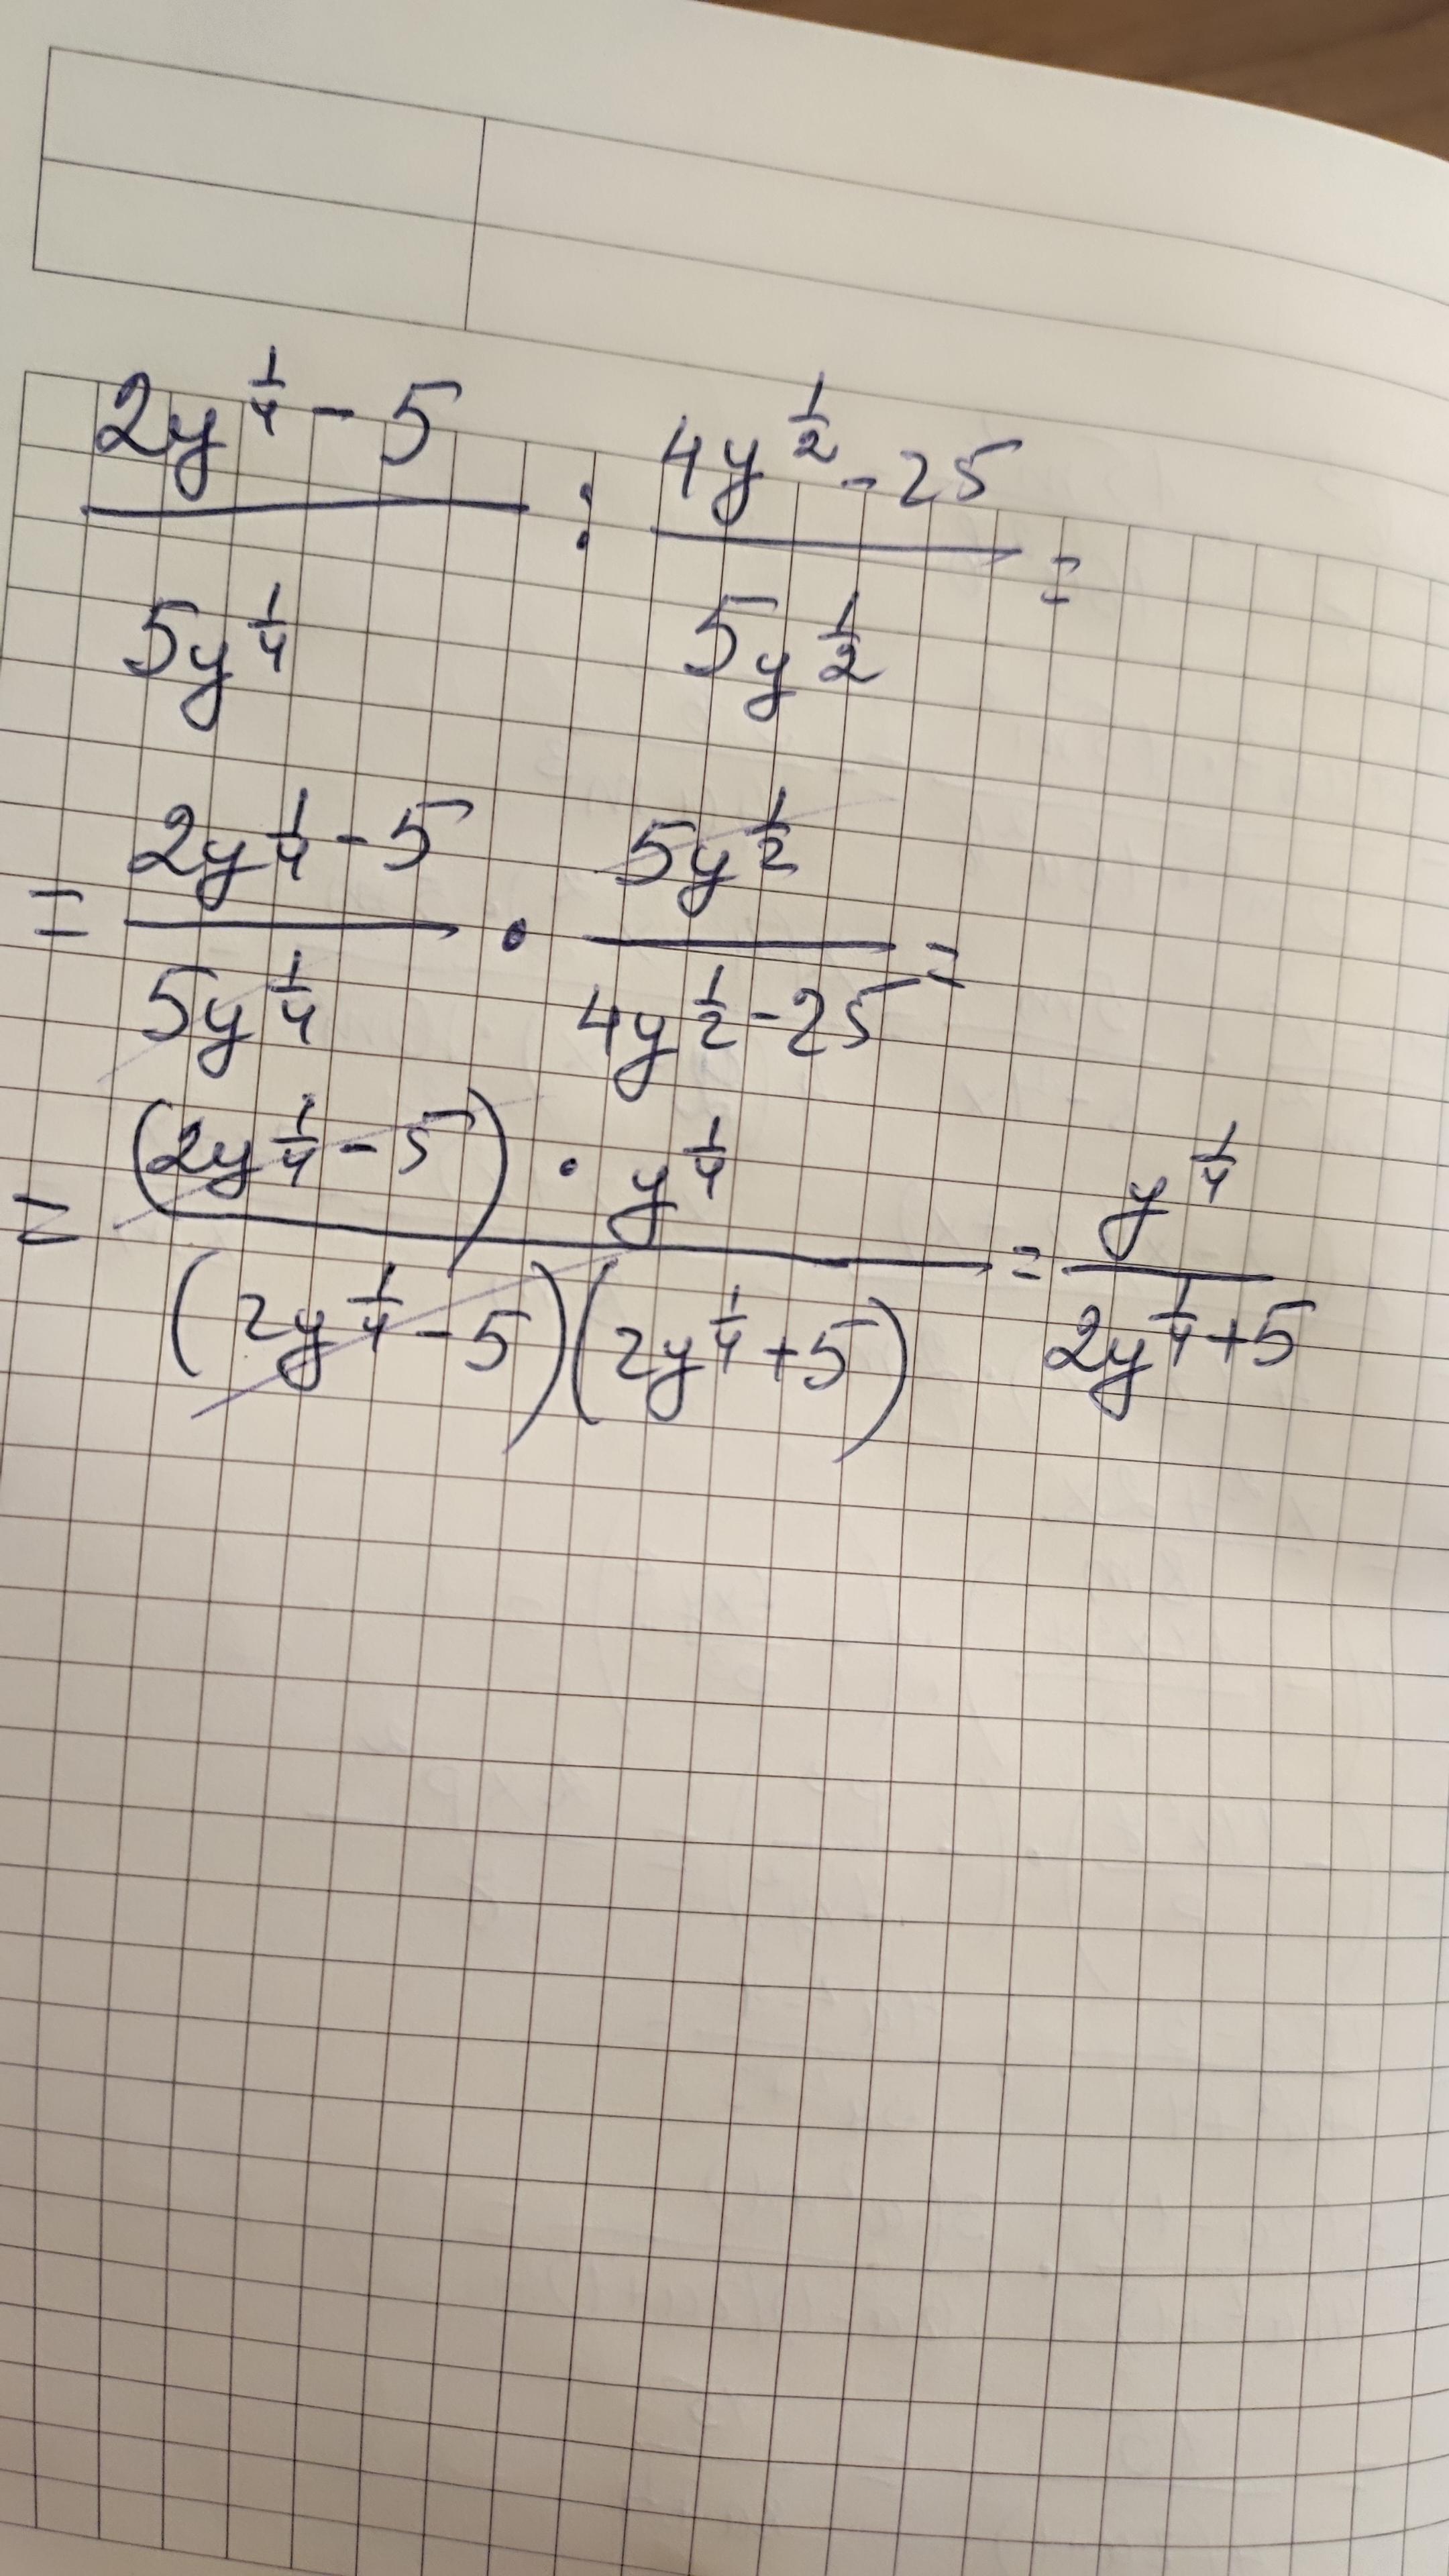 (2y^(1/4) - 5)/(5y^(1/4)) : (4y^(1/2) - 25)/(5y^(1/2)) =
= (2y^(1/4) - 5)/(5y^(1/4)) · (5y^(1/2))/(4y^(1/2) - 25) =
= ((2y^(1/4) - 5) · y^(1/4))/((2y^(1/4) - 5)(2y^(1/4) + 5)) = (y^(1/4))/(2y^(1/4) + 5)